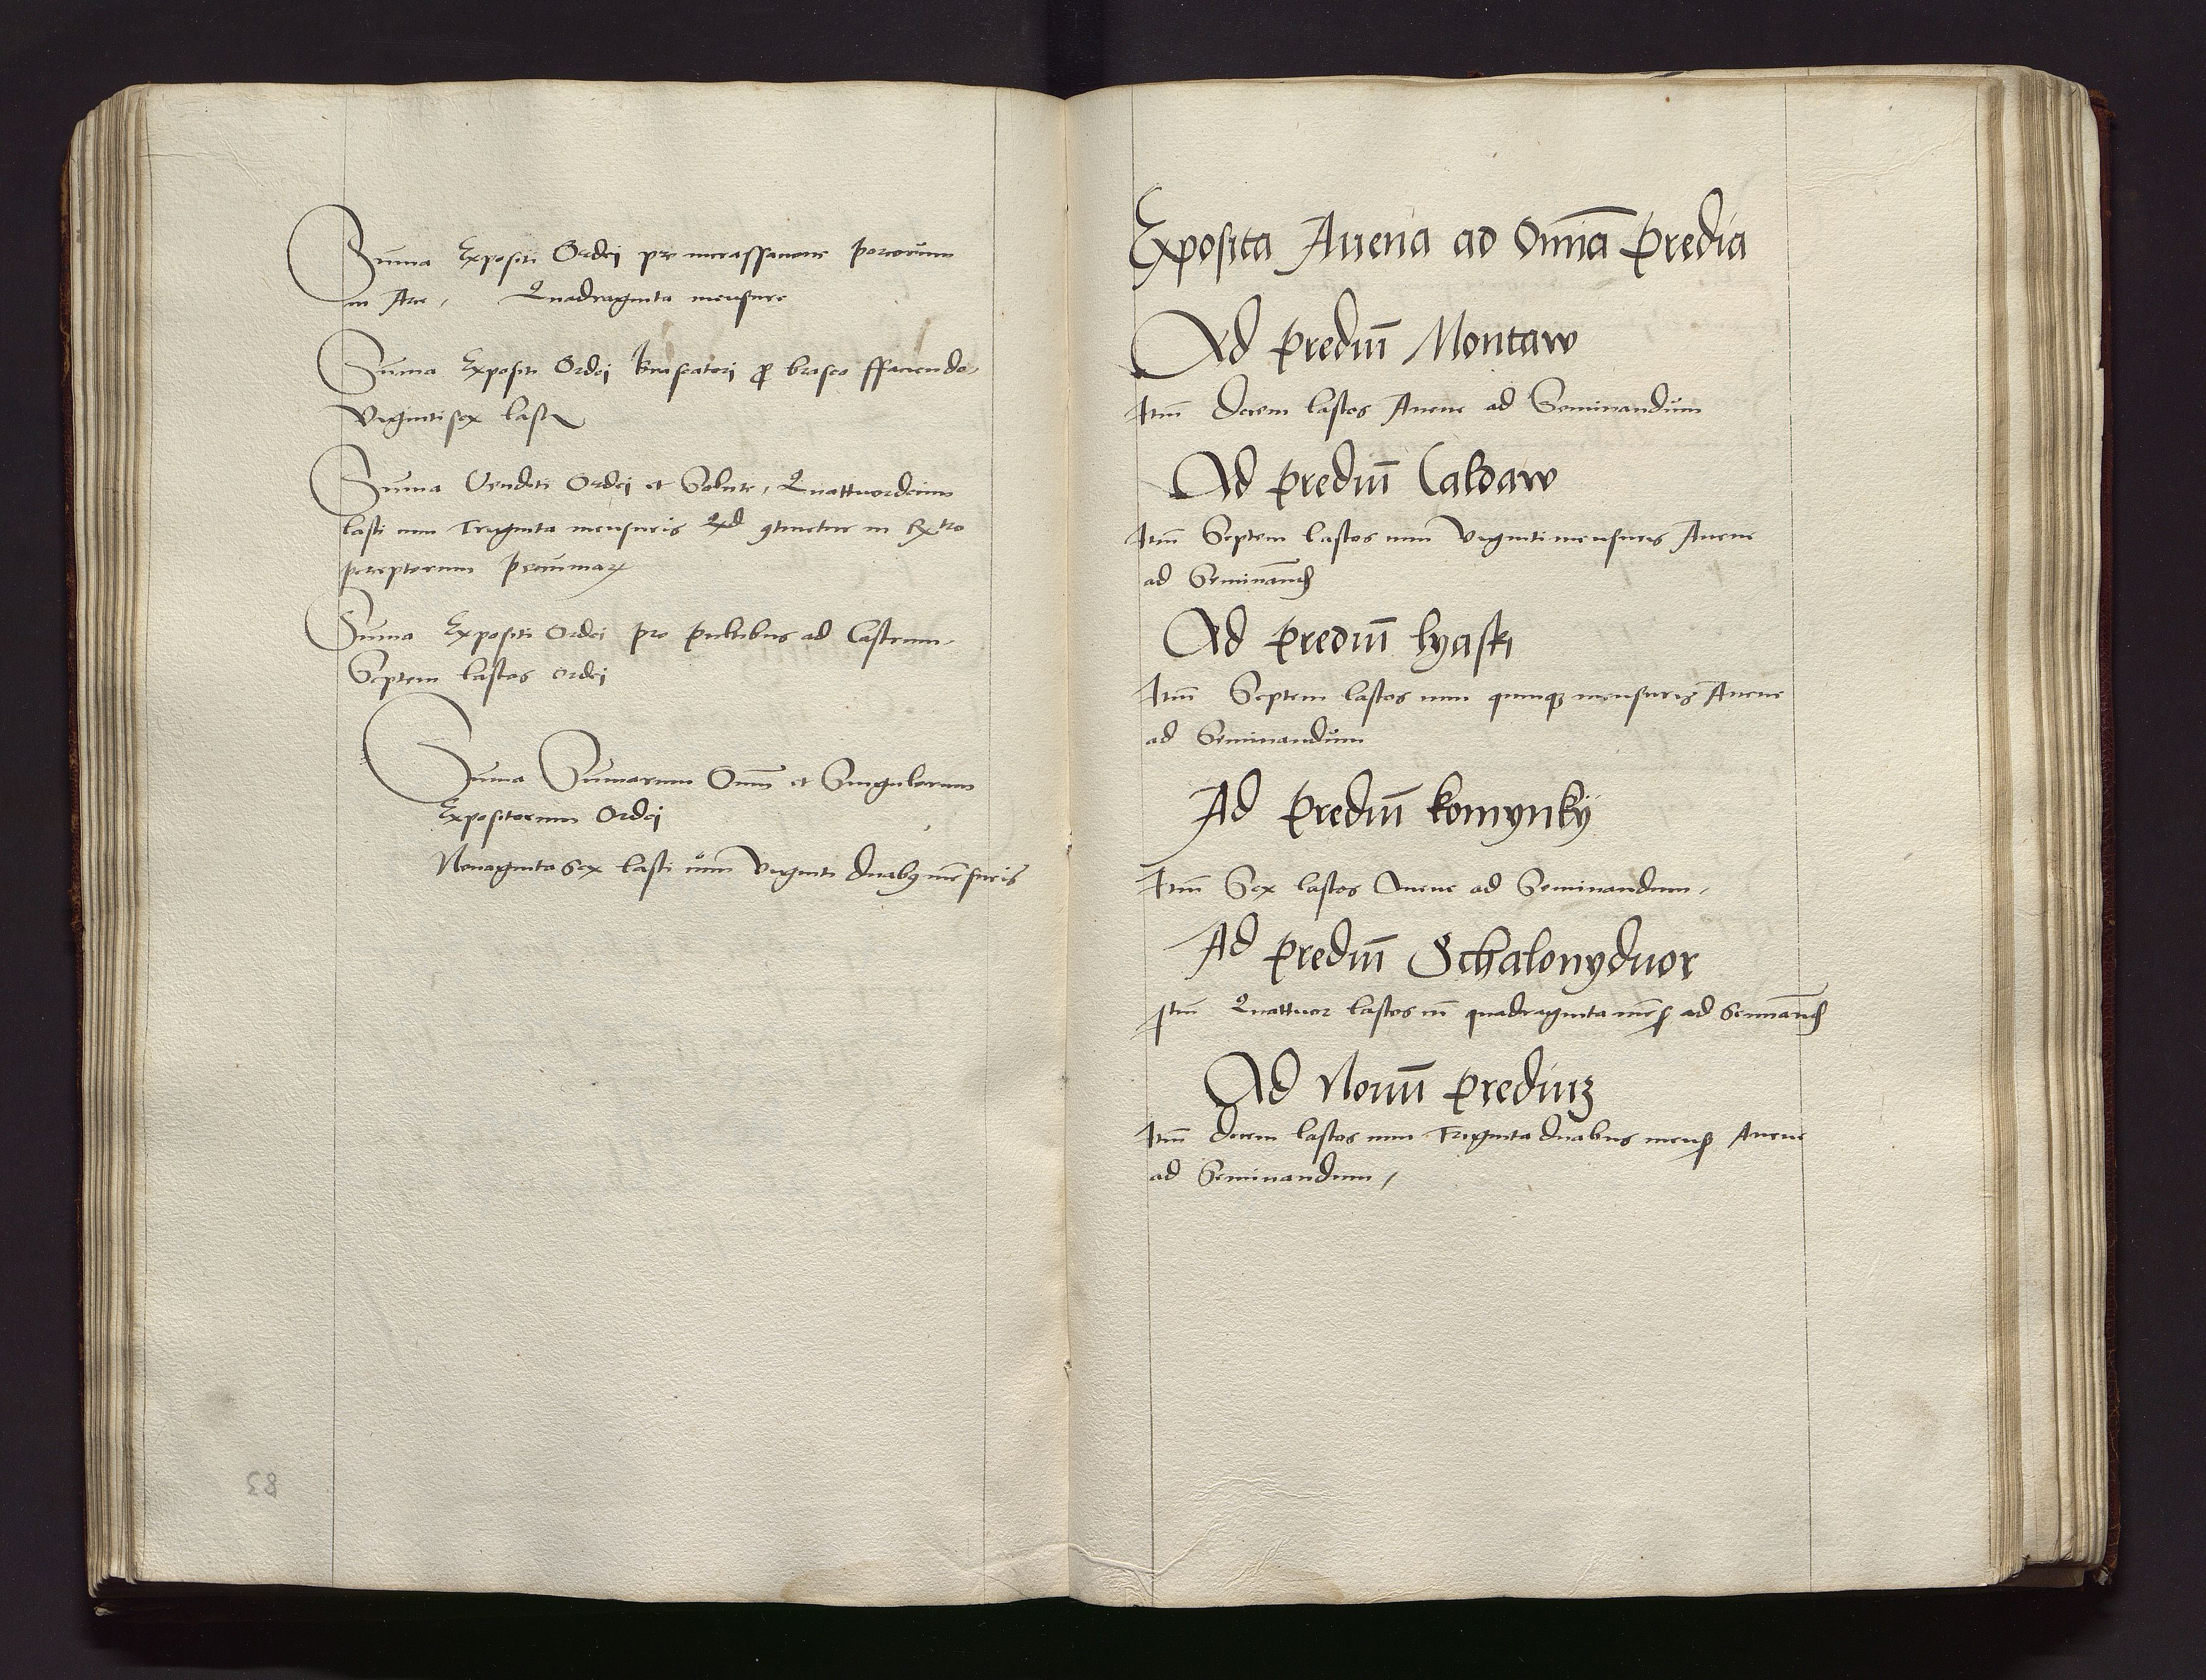 Suma Expositi Ordej pro incrassacione porcorum
in Arce, Quadraginta mensure
Suma Expositi Ordej Braseatorj p braseo ffaciendo,
Vigintisex lasti
Suma Venditi Ordej et Solute, Quattuordecim
lasti cum Triginta mensuris Qd 9tinetur in Rtro
perceptorum Pecuniarum
Suma Expositi Ordei pro pullibus ad Castrum,
Septem lastos ordej
Suma Sumarum Omni et Singulorum
Expositorum Ordej
Nonaginta Sex lasti cum Viginti duab9 mesuris
83
Exposita Auena ad Omnia Predia
Ad prediu Montaw
Itm Decem lastos Auene ad Seminandum
Ad prediu Caldaw
Itm Septem lastos cum Vigintimensuris Auene
ad Seminand
Ad prediu hyaski
Itm Septem lastos cum quinq3 mensuris Auene
ad Seminandum
Ad prediu komynky
Itm Sex lastos Auene ad Seminandum,
Ad prediu Schalonyduor
Itm Quattuor lastos cu quadraginta mens ad Seminand
Ad Nouu prediu3
Itm decem lastos cum Triginta duabus mens Auene
ad Seminandum,